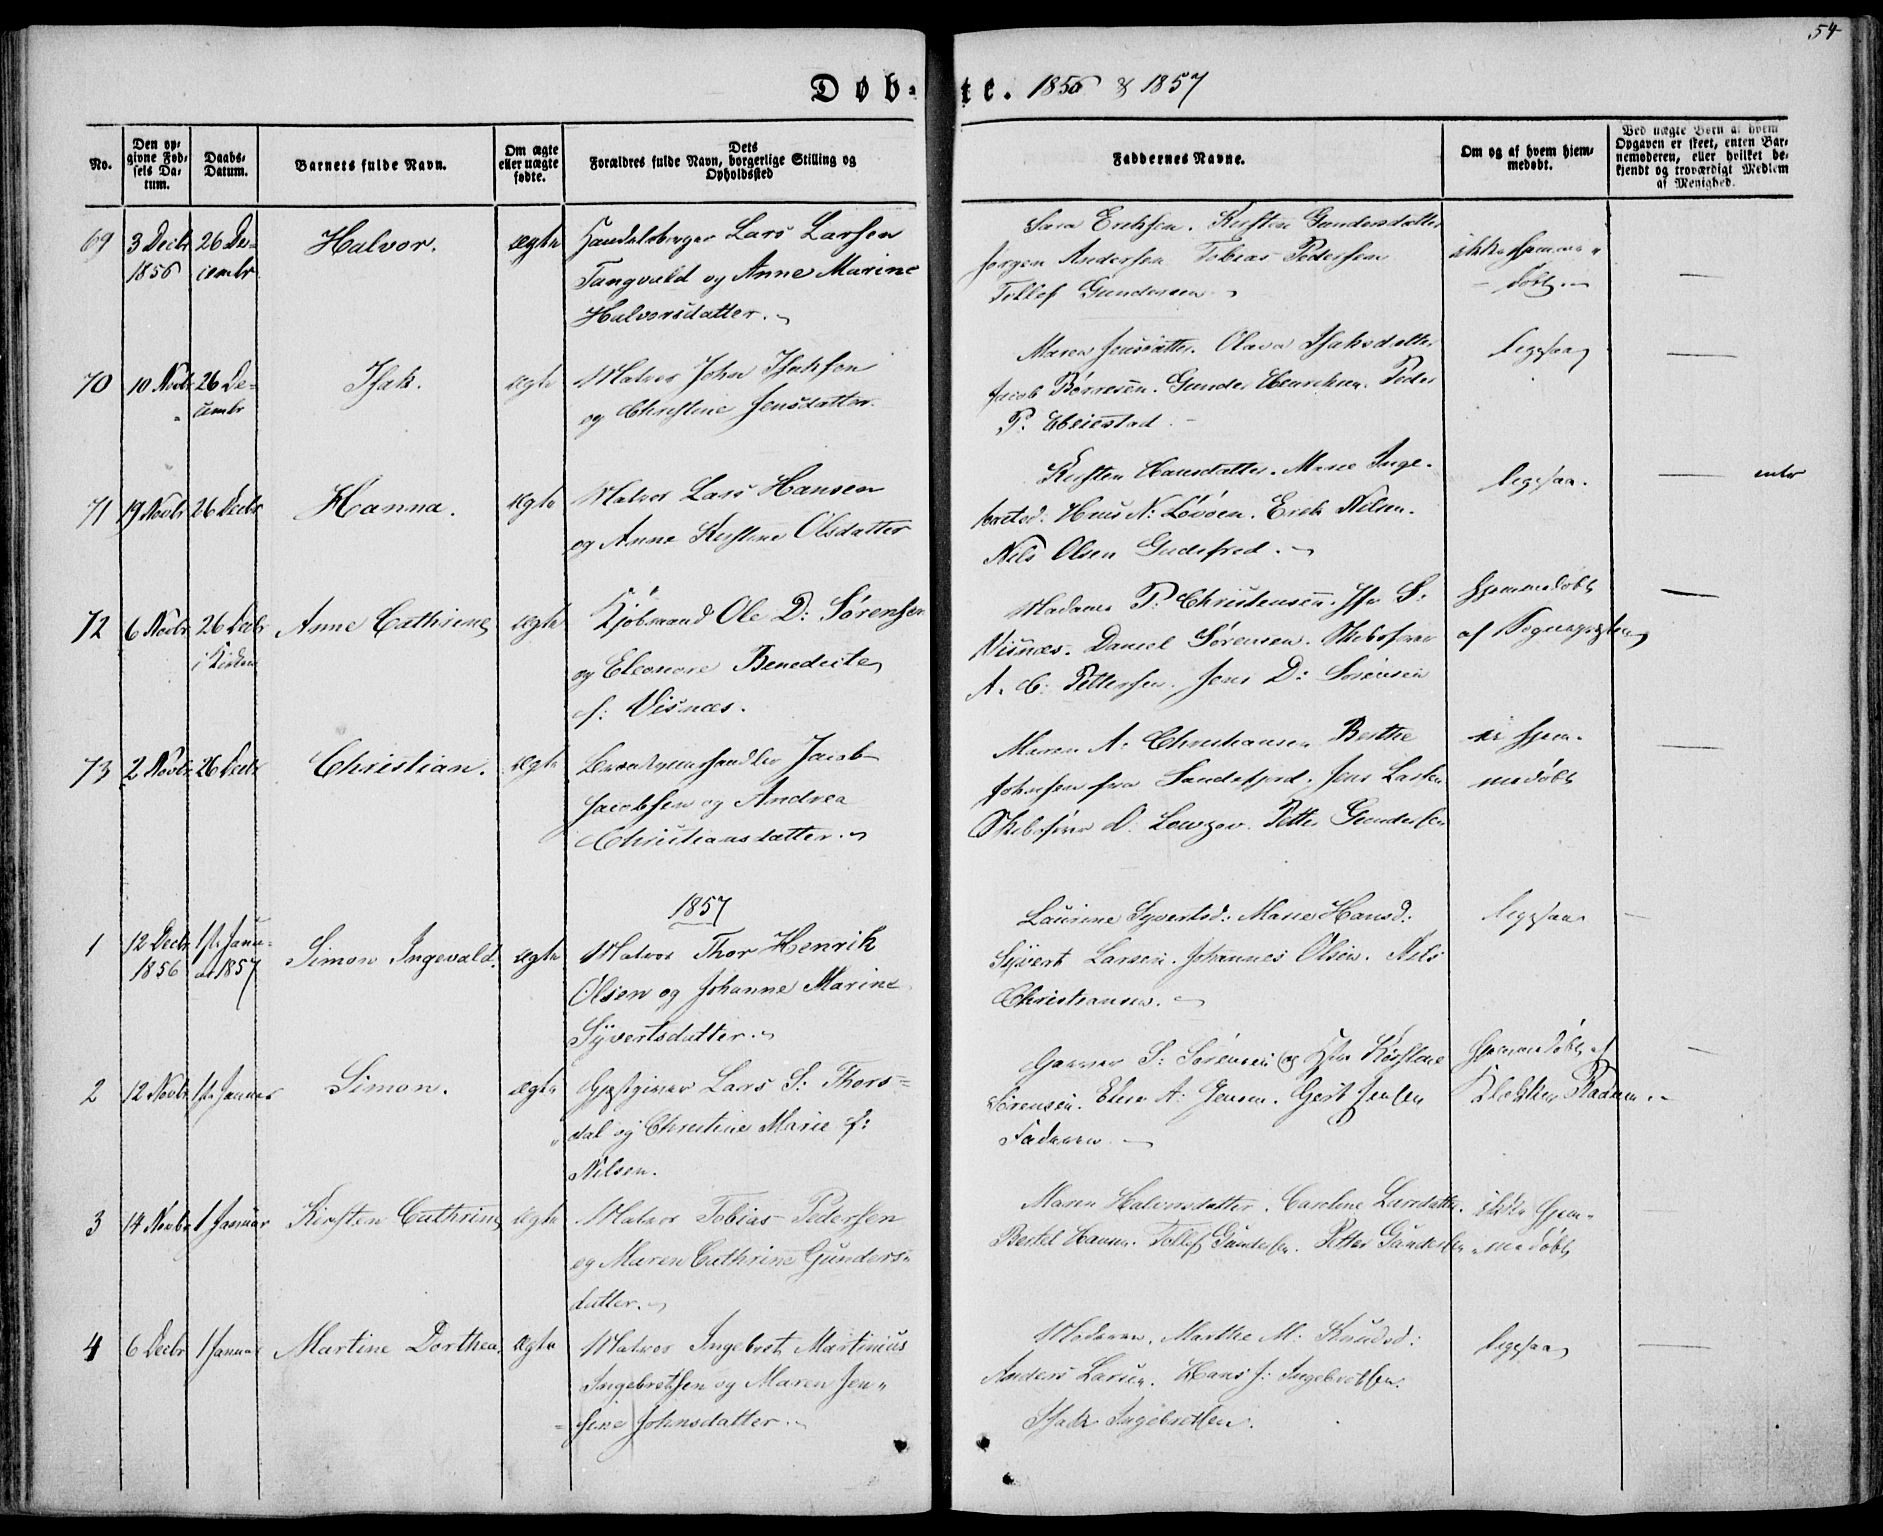 54
Døb-te. 1856 & 1857
No.
Den op-
givne Fød-
sels Da-
tum.
Daabs-
Datum.
Barnets fulde Navn.
Om ægte
eller uægte
fødte.
Dets
Forældres fulde Navn, borgerlige Stilling og
Opholdssted
Faddernes Navne.
Om og af hvem hjem-
medøbt.
Ved uægte Børn af hvem
Opgaven er skeet, enten Bar-
nemoderen, eller hvilket be-
kjendt og troværdigt Medlem
af Menighed.
69
3 Decbr
1856
26 De-
cembr
Halvor.
ægte
Handelsborger Lars Larsen
Tangvald og Anne Marine
Halvorsdatter.
Sara Eriksen. Kirsten Gundersdatter
Jørgen Andersen Tobias Pedersen
Tellef Gundersen
ikke hjemme-
døbt
70
10 Novbr
26 De-
cembr
Isak.
ægte
Matros John Isaksen
og Christine Jensdatter.
Maren Jensdatter. Olava Isaksdatter
Jacob Børresen. Gunder Henriksen. Peder
P. Heiestad
ligesaa
71
19 Novbr
26 Decbr
Hanna.
ægte
Matros Lars Hansen
og Anne Kirstine Olsdatter
Kirsten Hansdatter. Marie Inge-
bretsd: Hans N: Løvøen. Erik Nilsen.
Nils Olsen Gudefred.
ligesaa.
72
6 Novbr
26 Decbr
i Kirken
Anne Cathrine
ægte
Kjøbmand Ole D: Sørensen
og Eleonore Benedicte
f: Visnæs.
Madame P: Christensen. Jfr S:
Visnæs. Daniel Sørensen. Skibsfører
A. C. Pettersen. Jens D: Sørensen
hjemmedøbt
af Sognepresten
73
2 Novbr
26 Decbr
Christian.
ægte
Jacob
Jacobsen og Andrea
Christiansdatter.
Maren A: Christiansen Berthe
Johnsen fra Sandefjord. Jens Larsen
Skibsfører D: Lowzow. Petter Gundersen
ei hjem-
medøbt
1857
1
12 Decbr
1856
1ste Janu-
ar 1857
Simon Ingevald.
ægte
Matros Thor Henrik
Olsen og Johanne Marine
Syvertsdatter.
Laurine Syvertsd: Marie Hansd:
Syvert Larsen. Johannes Olsen. Nils
Christiansen.
ligesaa
2
12 Novbr
1ste Januar
Simon.
ægte
Gjestgiver Lars S: Thors-
dal og Christine Marie f:
Nilsen.
Garver S: Sørensen og Kirstine
Sørensen. A: Jensen. Gert Jensen
Faderen
hjemmedøbt af
Klokker
3
14 Novbr
1 Januar
Kirsten Cathrine
ægte
Matros Tobias Pedersen
og Maren Cathrine Gunders-
datter.
Maren Halvorsdatter. Caroline Larsdatter.
Bertel Hansen. Tellef Gundersen. Petter Gundersen
ikke hjem-
medøbt
4
6 Decbr
1 Januar
Martine Dorthea.
ægte
Matros Ingebret Martinius
Ingebretsen og Maren Jen-
sine Johnsdatter.
Moderen. Marthe M: Knudsd:
Anders Larsen. Hans J: Ingebretsen.
Isak Ingebretsen.
ligesaa